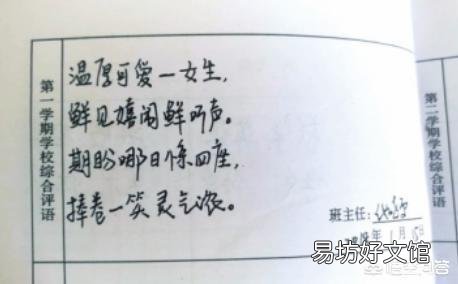 第一学期学校综合评语
温厚可爱一女生,
鲜见嬉闹鲜听声。
期盼哪日惊四座,
捧卷一笑灵气浓。
班主任:
年1月15日
第二学期学校综合评语
易坊好文馆